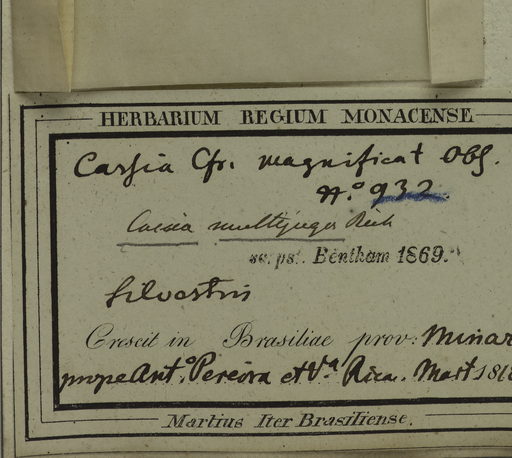 HERBARIUM REGIUM MONACENSE
Cassia Cfr. magnificat Obs.
N.º 932.
Cassia multijuga Rich
scrpst. Bentham 1869.
Silvestris
Crescit in Brasiliae prov: Minar
prope Ant.º Pereira et Vª Rica. Mart 181
Martius Iter Brasiliense.